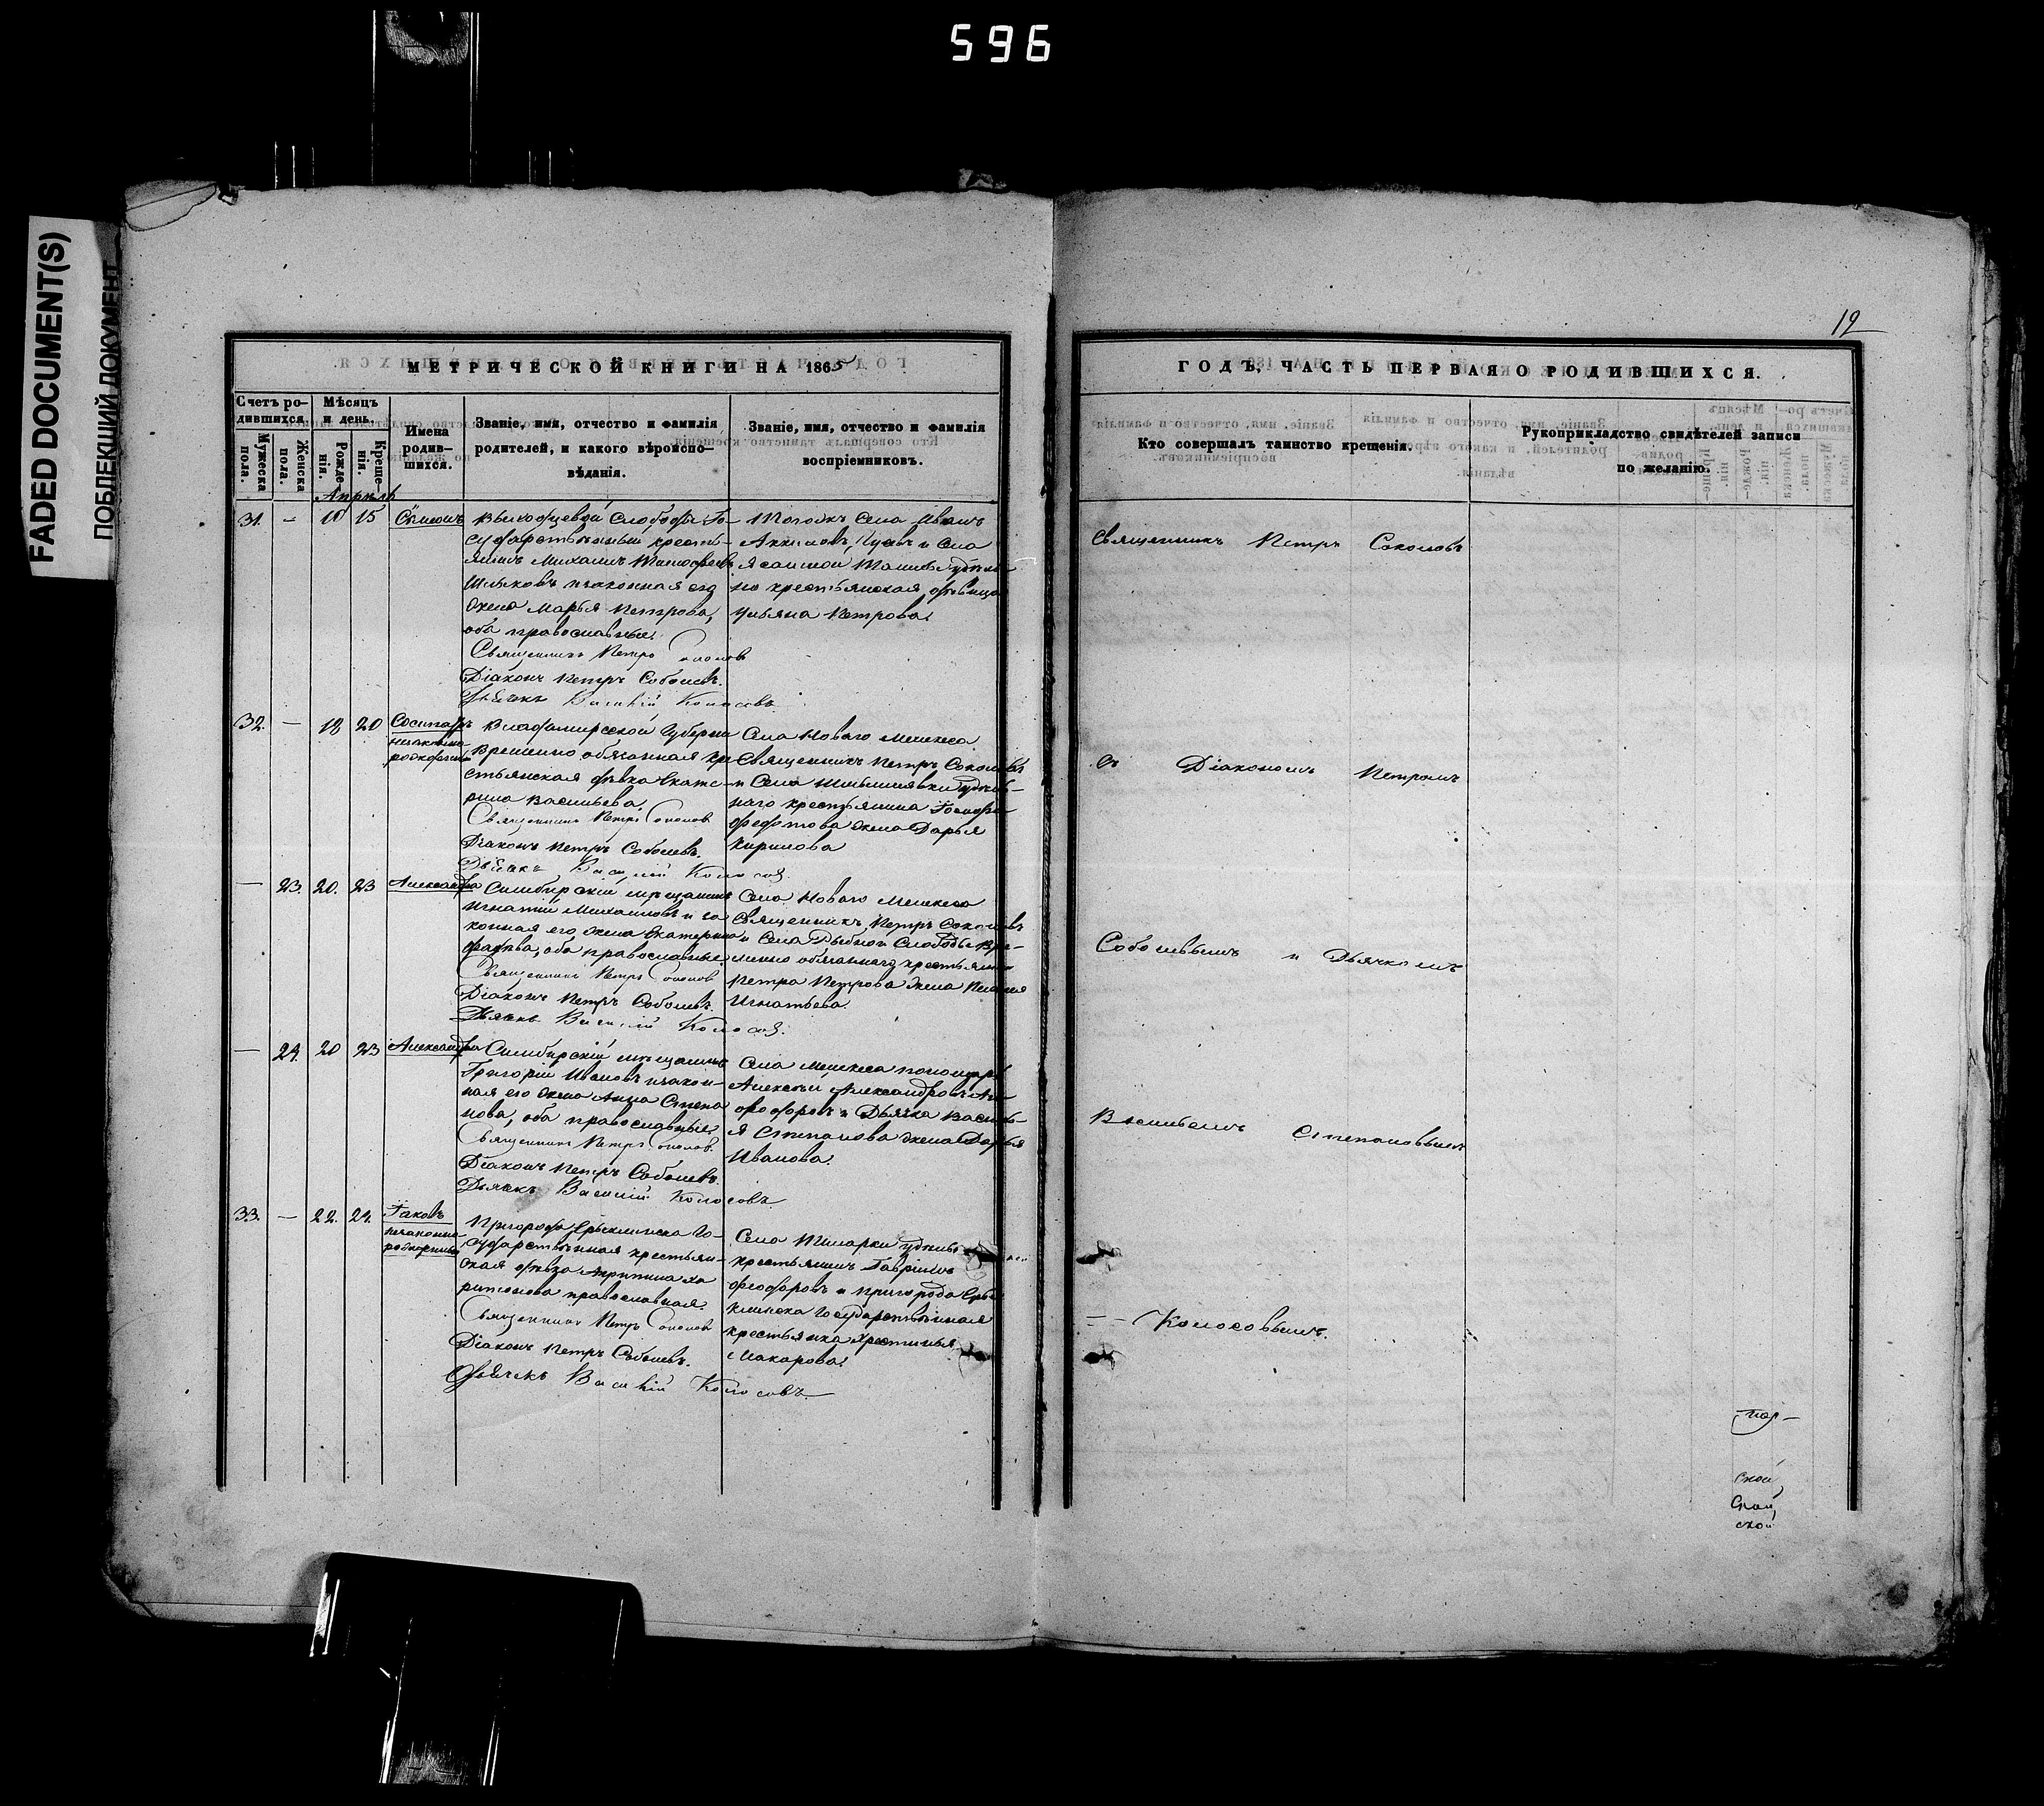 596
FADED DOCUMENT(S)
ПОБЛЕКШИЙ ДОКУМЕНТ
12
МЕТРИЧЕСКОЙ КНИГИ НА 1865
ГОДЪ, ЧАСТЬ ПЕРВАЯ О РОДИВШИХСЯ.
Счетъ ро-
дившихся.
Мужеска пола.
Женска пола.
Мѣсяцъ
и день.
Рожде-
нія.
Креще-
нія.
Имена
родив-
шихся.
Званіе, имя, отчество и фамилія
родителей, и какого вѣроиспо-
вѣданія.
Званіе, имя, отчество и фамилія
воспріемниковъ.
Кто совершалъ таинство крещенія.
Рукоприкладство свидѣтелей записи
по желанію.
Апрѣль
31. – 15 Симеонъ
слободы Го-
сударственный кресть-
янинъ Михаилъ
законная его
жена Марья Петрова,
оба православные.
Священникъ Петръ Соколовъ
Діаконъ Петръ Соболевъ.
Дьячекъ Василій Колосовъ
села Иванъ
и села
крестьянская дѣвица
Ульяна Петрова.
32. – 18 20 Сосипатръ
незаконно
рожденный
Владимирской Губерніи
временно обязанная кре
стьянская дѣвка Екате-
рина Васильева.
Священникъ Петръ Соколовъ
Діаконъ Петръ Соболевъ.
Дьячекъ Василій Колосовъ.
Села Новаго Мелекеса
Священникъ Петръ Соколовъ
и села удѣль-
наго крестьянина
Федотова жена Дарья
Кирилова
– 23. 20. 23 Александра
Симбирскій мѣщанинъ
Игнатій Михаиловъ и за
конная его жена Екатерина
оба православные.
Священникъ Петръ Соколовъ
Діаконъ Петръ Соболевъ.
Дьячекъ Василій Колосовъ.
Села Новаго Мелекеса
Священникъ Петръ Соколовъ
и села Рыбной Слободы вре-
менно обязаннаго крестьянина
Петра Петрова жена Пелагия
Игнатьева.
– 24. 20 23 Александра
Симбирскій мѣщанинъ
Григорій Ивановъ и закон-
ная его жена Анна Степа
нова, оба православные.
Священникъ Петръ Соколовъ.
Діаконъ Петръ Соболевъ.
Дьячекъ Василій Колосовъ
Села Мелекеса пономарь
Алексѣй Александровъ
и Дьячка Васил-
я Степанова жена Дарья
Иванова.
33. – 22. 24. Іаковъ
незаконно
рожденный
Пригорода Ерыклинска Го-
сударственная крестьян-
ская дѣвка Ха
ритонова православная.
Священникъ Петръ Соколовъ
Діаконъ Петръ Соболевъ.
Дьячекъ Василій Колосовъ.
Села удѣльн
крестьянинъ Гавріилъ
Феодоровъ и пригорода Еры
клинска Государственная
крестьянка Христинья
Макарова.
Священникъ Петръ Соколовъ
съ Діакономъ Петромъ
Соболевымъ и Дьячкомъ
Василіемъ Степановымъ
– – Колосовымъ.
ской
ской
ской